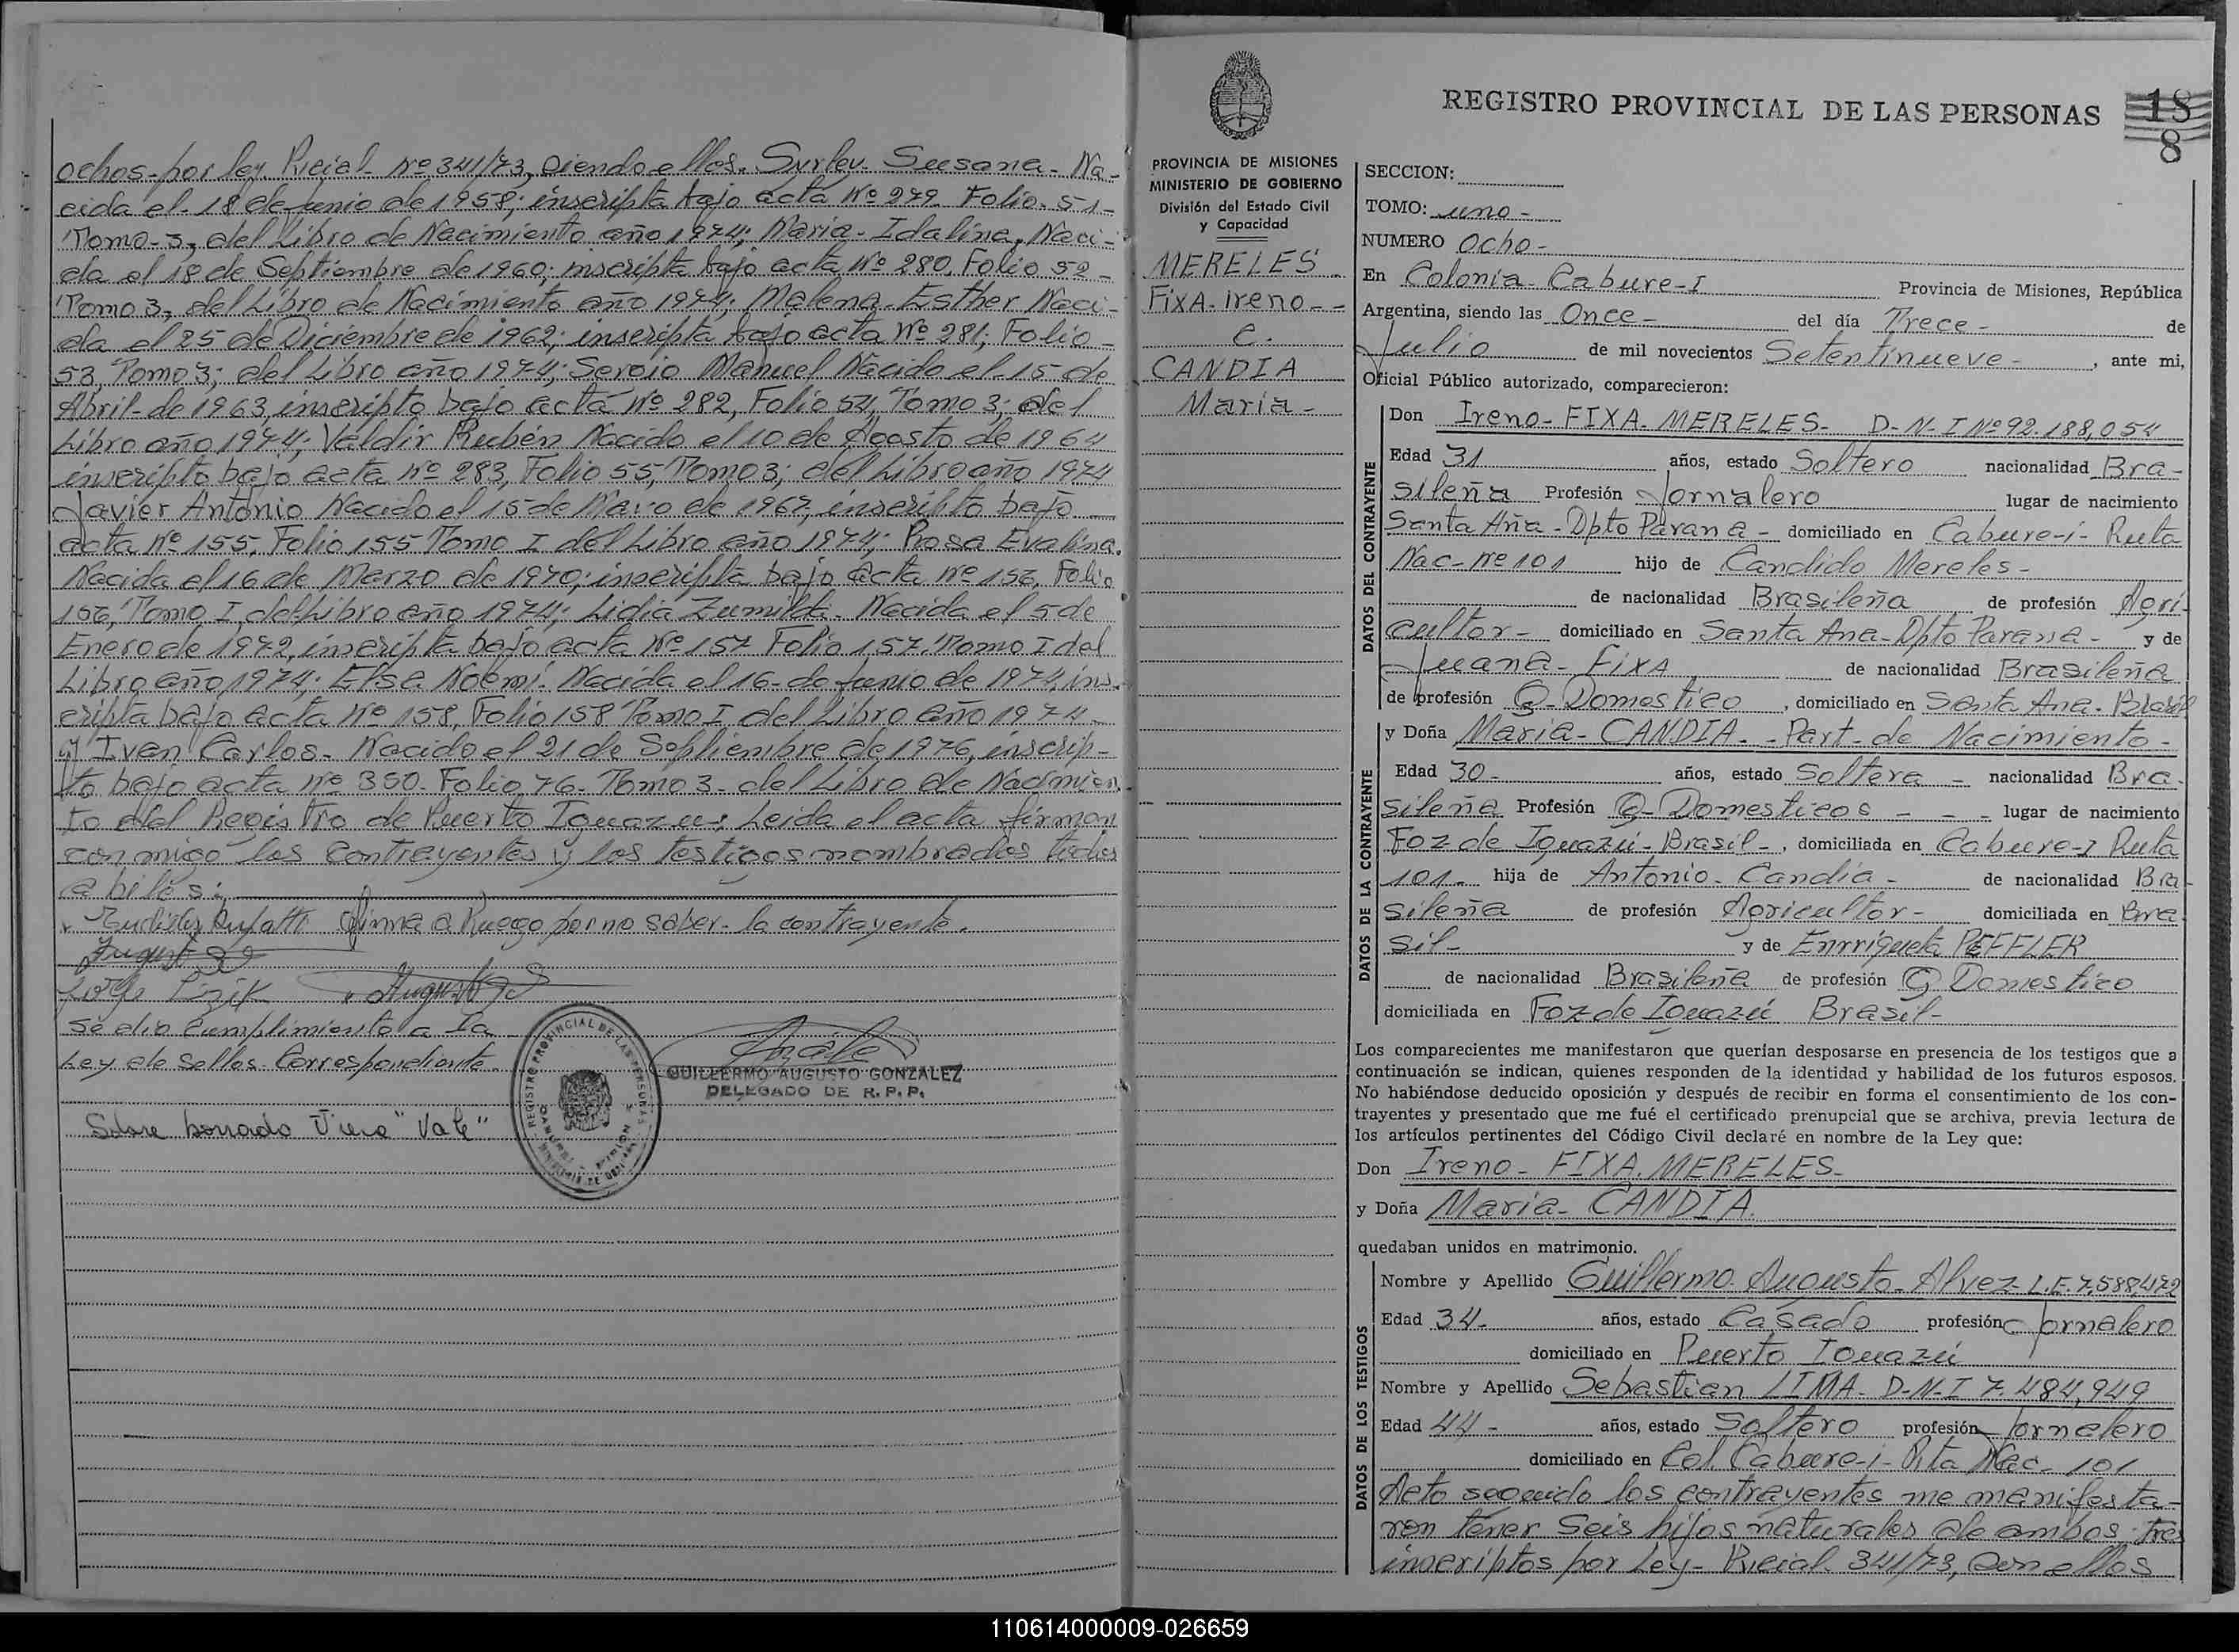 ochos-por ley Pvcial- Nº 341/73, siendo ellos. Surley. Susana- Na-
cida el- 18 de Junio de 1958; inscripta bajo acta Nº 279. Folio- 51-
Tomo-3, del Libro de Nacimiento año 1974; María- Idalina, Naci-
da el 18 de Septiembre de 1960; inscripta bajo acta Nº 280, Folio 52-
Tomo 3, del Libro de Nacimiento año 1974; Malena- Esther Naci-
da el 25 de Diciembre de 1962; inscripta bajo acta Nº 281; Folio-
53, Tomo 3; del Libro año 1974; Sergio Manuel Nacido el-15 de
Abril-de 1963, inscripto bajo acta Nº 282, Folio 54, Tomo 3; del
Libro año 1974; Valdir Rubén Nacido el 10 de Agosto de 1964
inscripto bajo acta nº 283, Folio 55, Tomo 3; del Libro año 1974
Javier Antonio Nacido el 15 de de 1967, inscripto bajo
acta Nº 155, Folio 155 Tomo I del Libro año 1974; Rosa Evalina.
Nacida el 16 de Marzo de 1970; inscripta bajo acta nº 156, Folio
156, Tomo I del Libro año 1974; Lidia Zumilda- Nacida el 5 de
Enero de 1972, inscripta bajo acta Nº 157 Folio 157. Tomo I del
Libro año 1974; Elsa Noemi. Nacida el 16- de Junio de 1974, ins-
cripta bajo acta Nº 158, Folio 158 Tomo I del Libro año 1974-
y Ivan Carlos- Nacido el 21 de Septiembre de 1976, inscrip-
to bajo acta nº 350- Folio 76- Tomo 3- del Libro de Nacimien
to del Registro de Puerto Iguazu; Leida el acta firman
conmigo los Contrayentes y los testigos nombrados todos
abiles:
firma a Ruego por no saber- la contrayente.
August
August
Se dio Cumplimiento a la
Ley de Sellos- Correspondiente.
GUILLERMO AUGUSTO GONZALEZ
DELEGADO DE R. P. P.
REGISTRO PROVINCIAL DE LAS PERSONAS
Sobre borrado "Vale"
REGISTRO PROVINCIAL DE LAS PERSONAS
18
8
PROVINCIA DE MISIONES
MINISTERIO DE GOBIERNO
División del Estado Civil
y Capacidad
MERELES
FIXA- Ireno--
C.
CANDIA
María-
SECCION:
TOMO: uno-
NUMERO Ocho-
En Colonia- Cabure-I Provincia de Misiones, República
Argentina, siendo las Once- del día Trece- de
Julio de mil novecientos Setentinueve-, ante mi,
Oficial Público autorizado, comparecieron:
DATOS DEL CONTRAYENTE
Don Ireno- FIXA- MERELES- D-N-I Nº 92.188,054
Edad 31 años, estado Soltero nacionalidad Bra-
sileña Profesión Jornalero lugar de nacimiento
Santa Ana- Dpto Parana- domiciliado en Cabure-i- Ruta
Nac- nº 101 hijo de Candido Mereles-
de nacionalidad Brasileña de profesión Agri-
cultor- domiciliado en Santa Ana- Dpto Parana- y de
Juana- FIXA de nacionalidad Brasileña
de profesión Q- Domestico, domiciliado en Santa Ana- Brasil
DATOS DE LA CONTRAYENTE
y Doña María- CANDIA.- Part- de Nacimiento-
Edad 30- años, estado Soltera- nacionalidad Bra-
sileña Profesión Q- Domesticos - - - lugar de nacimiento
Foz de Iguazú- Brasil-, domiciliada en Cabure-I Ruta
101- hija de Antonio- Candia- de nacionalidad Bra-
sileña de profesión Agricultor- domiciliada en Bra-
sil- y de Enrriqueta PEFFLER
de nacionalidad Brasileña de profesión Q Domestico
domiciliada en Foz de Iguazú Brasil-
Los comparecientes me manifestaron que querían desposarse en presencia de los testigos que a
continuación se indican, quienes responden de la identidad y habilidad de los futuros esposos.
No habiéndose deducido oposición y después de recibir en forma el consentimiento de los con-
trayentes y presentado que me fué el certificado prenupcial que se archiva, previa lectura de
los artículos pertinentes del Código Civil declaré en nombre de la Ley que:
Don Ireno- FIXA. MERELES-
y Doña María- CANDIA.
quedaban unidos en matrimonio.
DATOS DE LOS TESTIGOS
Nombre y Apellido Guillermo Augusto- Alvez L.E. 7,588,472
Edad 34- años, estado Casado profesión Jornalero
domiciliado en Puerto Iguazú
Nombre y Apellido Sebastian LIMA- D-N-I 7.484,949
Edad 44- años, estado Soltero profesión Jornalero
domiciliado en Col. Cabure-i- Rta Nac- 101
Acto seguido los contrayentes me manifesta-
ron tener Seis hijos naturales de ambos; tres
inscriptos por Ley- Pvcial. 341/73, con ellos
110614000009-026659